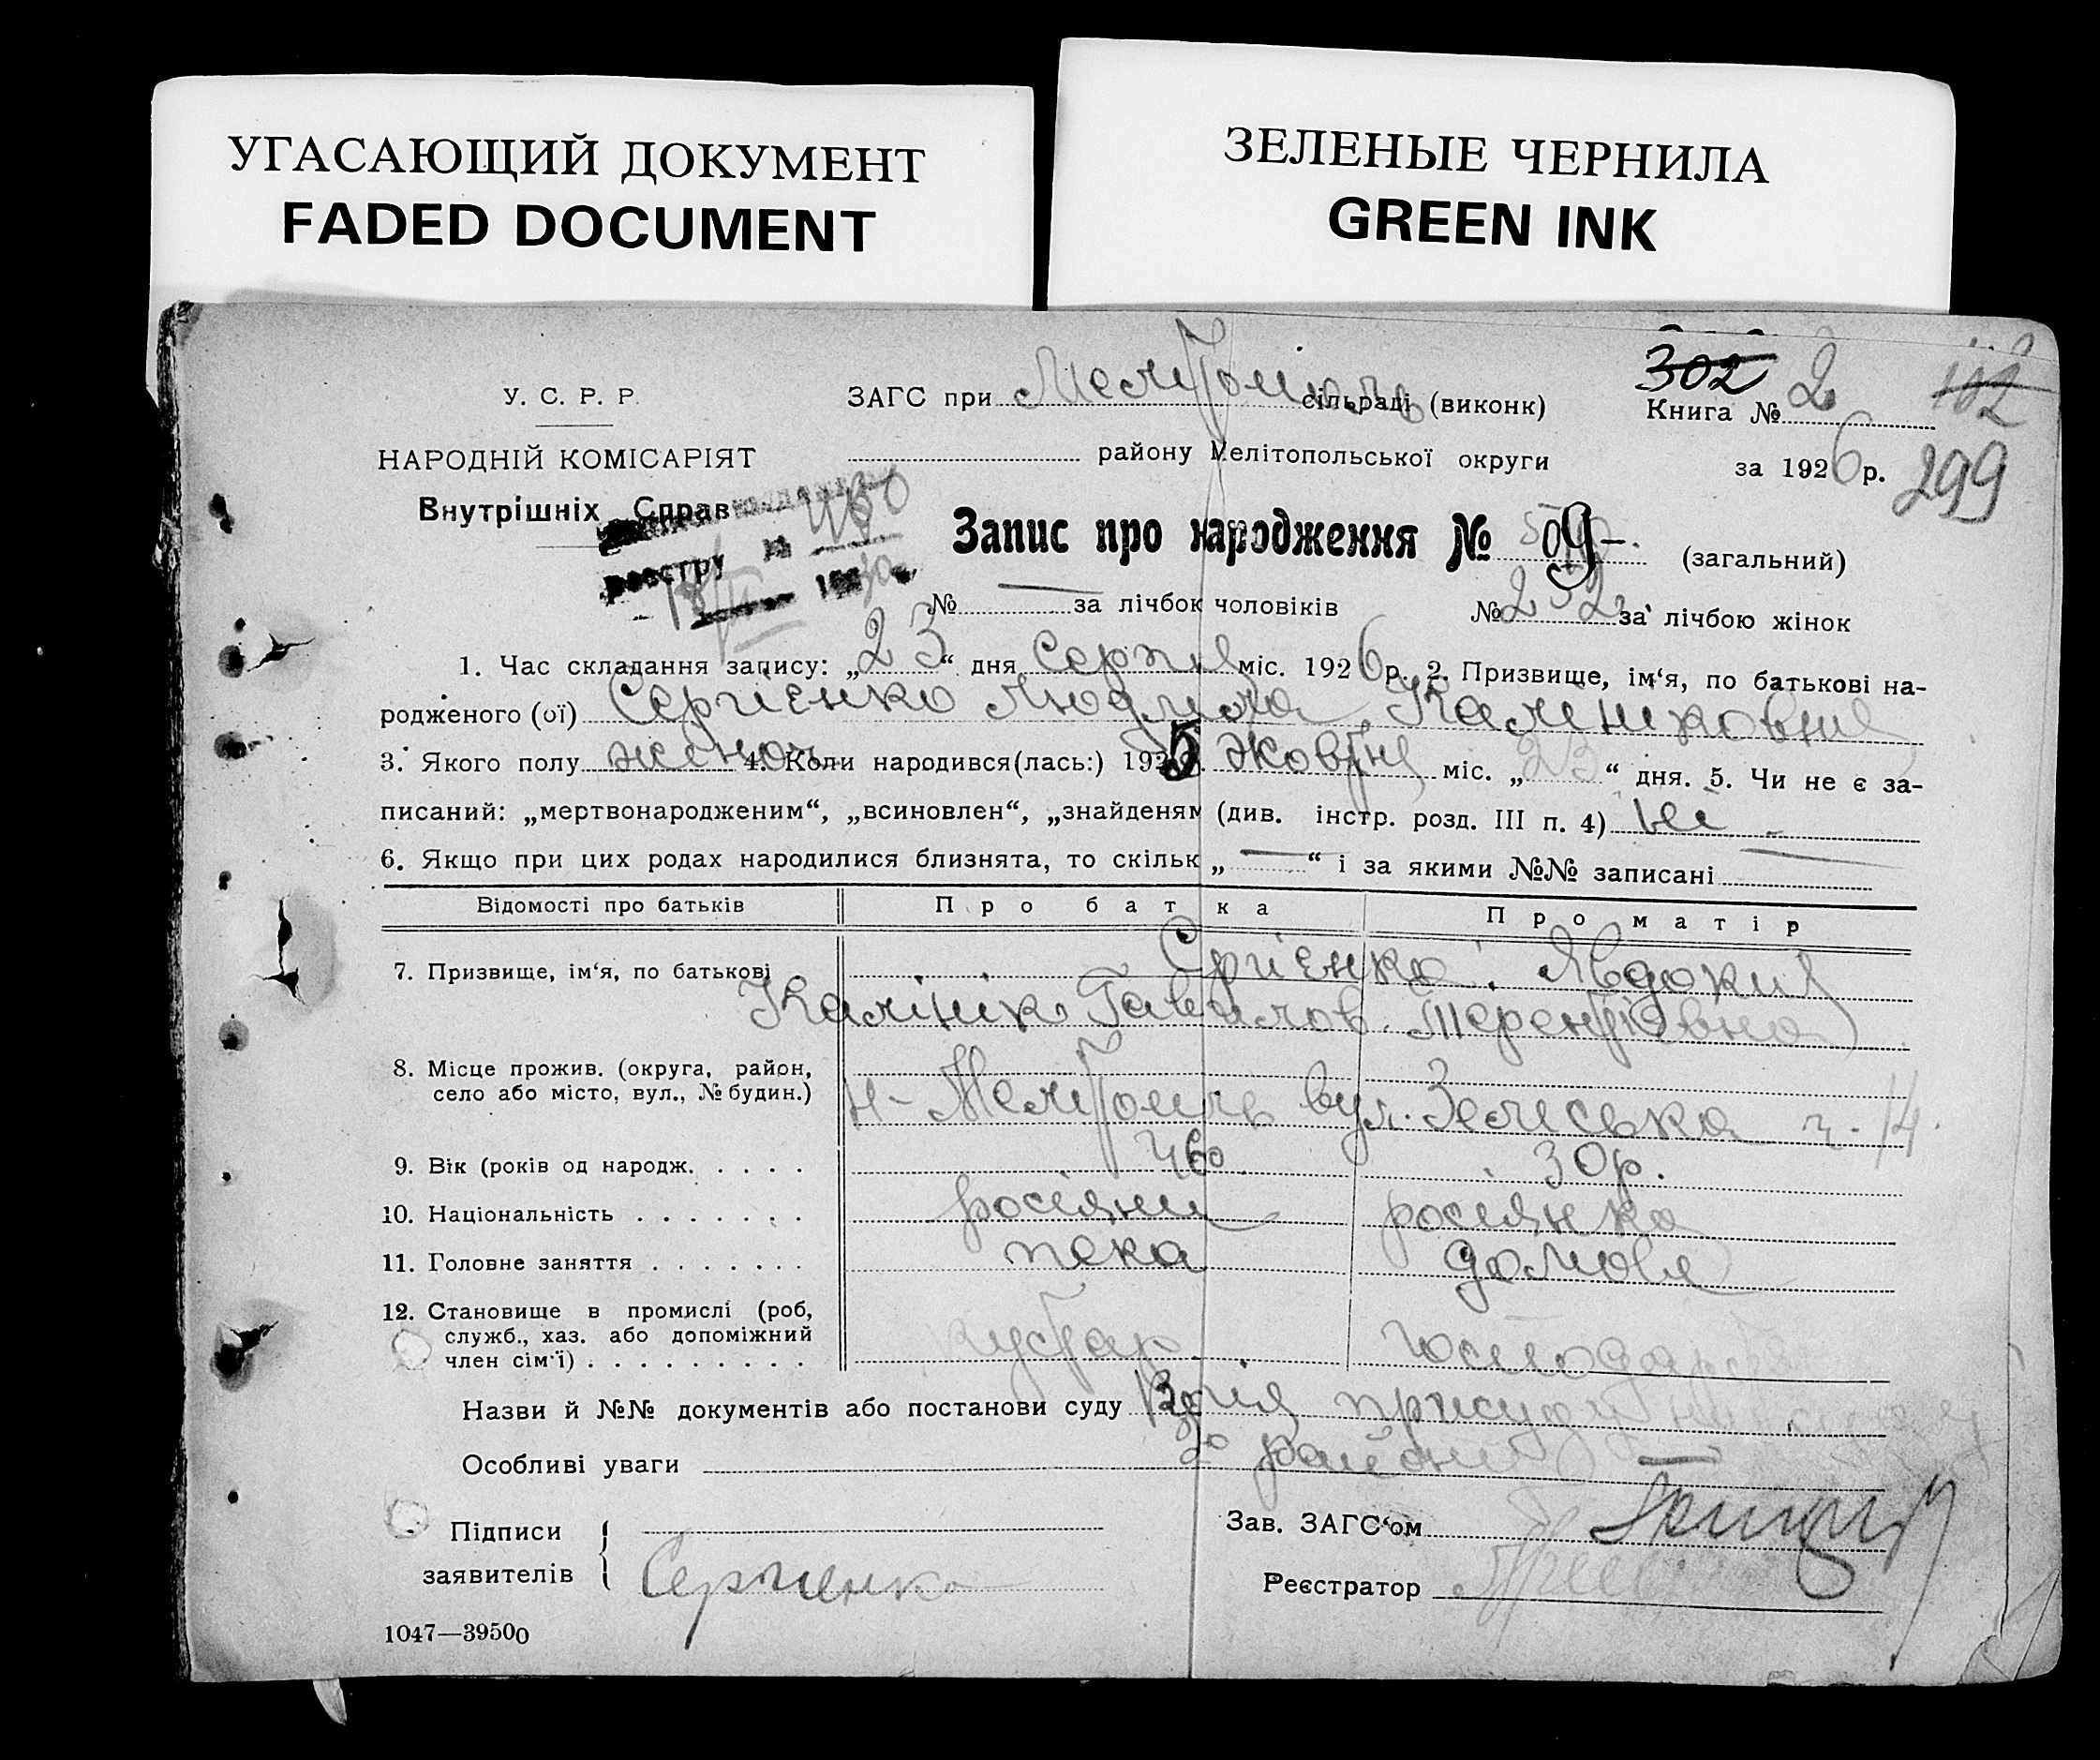 УГАСАЮЩИЙ ДОКУМЕНТ
FADED DOCUMENT
ЗЕЛЕНЫЕ ЧЕРНИЛА
GREEN INK
302
У. С. Р. Р.
ЗАГС при Мелітополь сільраді (виконк)
Книга № 2
НАРОДНІЙ КОМІСАРІЯТ
району Мелітопольської округи
за 1926 р.
299
Внутрішніх Справ
реєстру №
Запис про народження № 509 (загальний)
№ — за лічбою чоловіків
№ 252 за лічбою жінок
1. Час складання запису: „23“ дня серпня міс. 1926 р. 2. Призвище, ім‘я, по батькові на-
родженого (ої) Сергієнко Людмила Калініковна
3. Якого полу жіноч. 4. Коли народився(лась:) 1925 Жовтня міс. „23“ дня. 5. Чи не є за-
писаний: „мертвонародженим“, „всиновлен“, „знайденям (див. інстр. розд. III п. 4) ні -
6. Якщо при цих родах народилися близнята, то скільк „—“ і за якими №№ записані —
Відомості про батьків
Про батка
Про матір
7. Призвище, ім‘я, по батькові
Сргієнко
Явдокия
Калінік Гаврилов.
Терентіівна
8. Місце прожив. (округа, район,
село або місто, вул., № будин.)
Мелітополь вул. ч. 14.
9. Вік (років од народж.
30р.
10. Національність
росіянин
росіянка
11. Головне заняття
пека
домове
12. Становище в промислі (роб,
служб., хаз. або допоміжний
член сім‘ї)
кустар
господар
Назви й №№ документів або постанови суду Копія присуду
Особливі уваги
району
Підписи
заявителів
Сергиенко
Зав. ЗАГС‘ом
Реєстратор
1047—39500